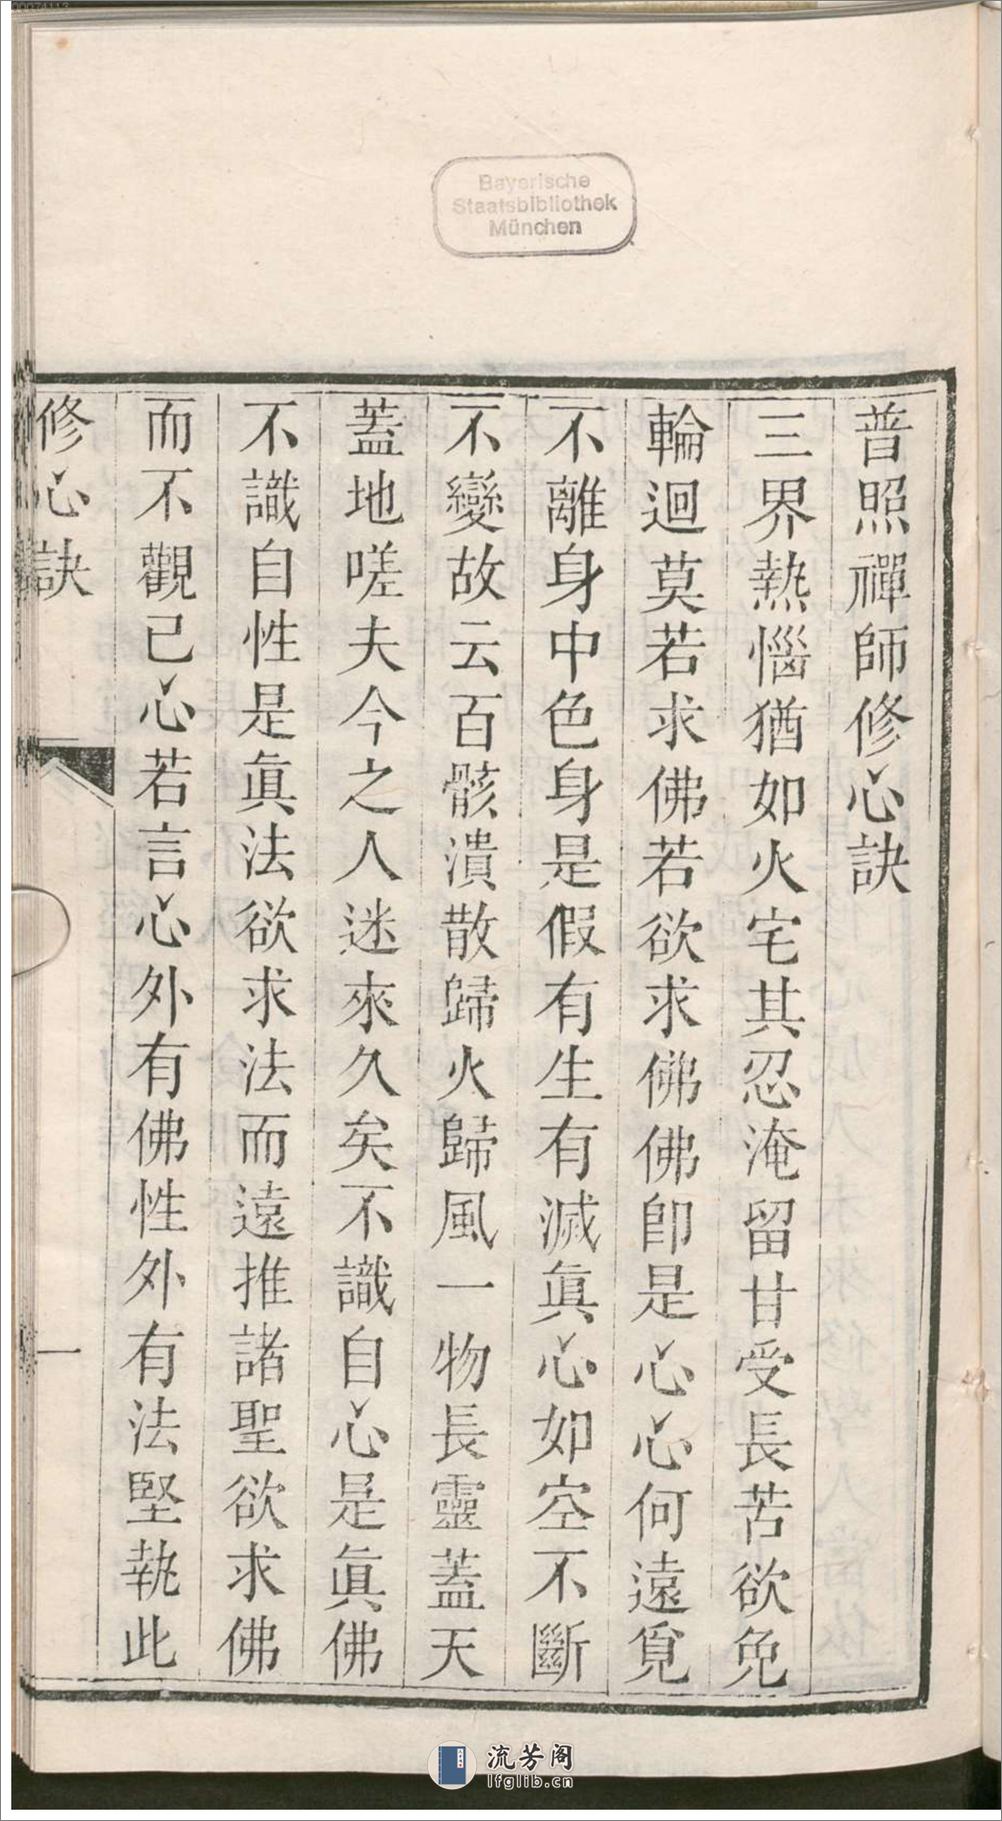 00074113
Bayerische
Staatsbibliothek
München
普照禪師修心訣
三界熱惱猶如火宅其忍淹留甘受長苦欲免
輪迴莫若求佛若欲求佛佛卽是心心何遠覓
不離身中色身是假有生有滅眞心如空不斷
不變故云百骸潰散歸火歸風一物長靈蓋天
蓋地嗟夫今之人迷來久矣不識自心是眞佛
不識自性是眞法欲求法而遠推諸聖欲求佛
而不觀已心若言心外有佛性外有法堅執此
修心訣
一
流芳阁
lfglib.cn